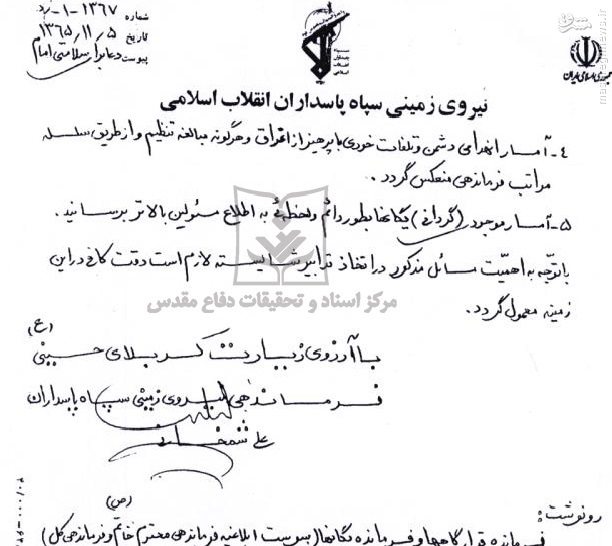 شماره ۱۳۶۷-۱-رد
تاریخ ۱۳۶۵/۱۱/۵
پیوست دعا برای سلامتی امام
جمهوری اسلامی ایران
mashreghnews.ir
نیروی زمینی سپاه پاسداران انقلاب اسلامی
۴- آمار انهدامی دشمن و تلفات خودی با پرهیز از اغراق و هرگونه مبالغه تنظیم و از طریق سلسله
مراتب فرماندهی منعکس گردد.
۵- آمار موجود (گردانی) یگانها بطور دائم ولحظه‌ئی به اطلاع مسئولین بالاتر برسانید.
باتوجه به اهمیت مسائل مذکور در اتخاذ تدابیر شایسته لازم است دقت کافی در این
زمینه معمول گردد.
مرکز اسناد و تحقیقات دفاع مقدس
با آرزوی زیارت کربلای حسینی (ع)
فرماندهی نیروی زمینی سپاه پاسداران
علی شمخانی
رونوشت:
فرمانده قرارگاهها و فرمانده یگانها پیوست ابلاغیه فرماندهی محترم خاتم (ص) و فرماندهی کل)